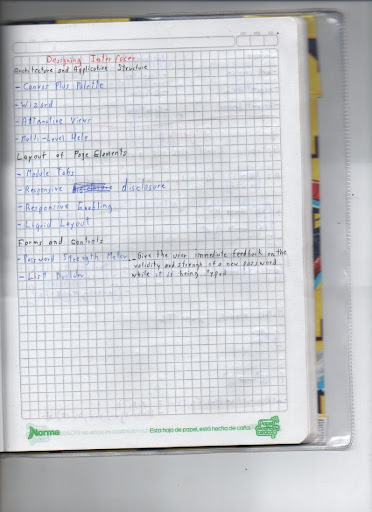 Designing Interfaces
Architecture and Application Structure
- Canvas Plus Palette
- Wizard
- Alternative Views
- Multi-Level Help
Layout of Page Elements
- Module Tabs
- Responsive disclosure
- Responsive Enabling
- Liquid Layout
Forms and controls
- Password Strength Meter - Give the user immediate feedback on the
validity and strength of a new password
while it is being typed
- List Builder
Norma Esta hoja de papel, está hecha de caña